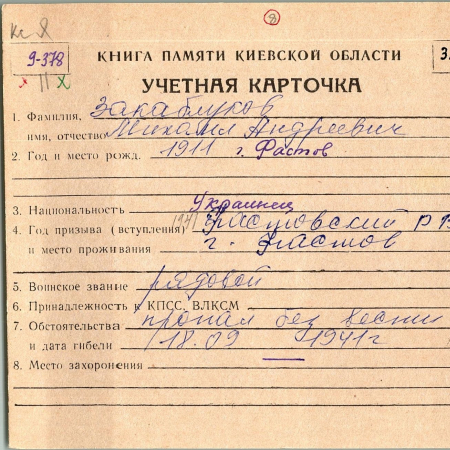 8
Кс Я
9-378
3.
х 11 х
КНИГА ПАМЯТИ КИЕВСКОЙ ОБЛАСТИ
УЧЕТНАЯ КАРТОЧКА
1. Фамилия, Закаблуков
имя, отчество Михаил Андреевич
2. Год и место рожд. 1911 г. Фастов
3. Национальность Украинец
4. Год призыва (вступления) 1941 Фастовский р
и место проживания г. Фастов
5. Воинское звание рядовой
6. Принадлежность к КПСС, ВЛКСМ
7. Обстоятельства пропал без вести
и дата гибели 18.09 1941г
8. Место захоронения